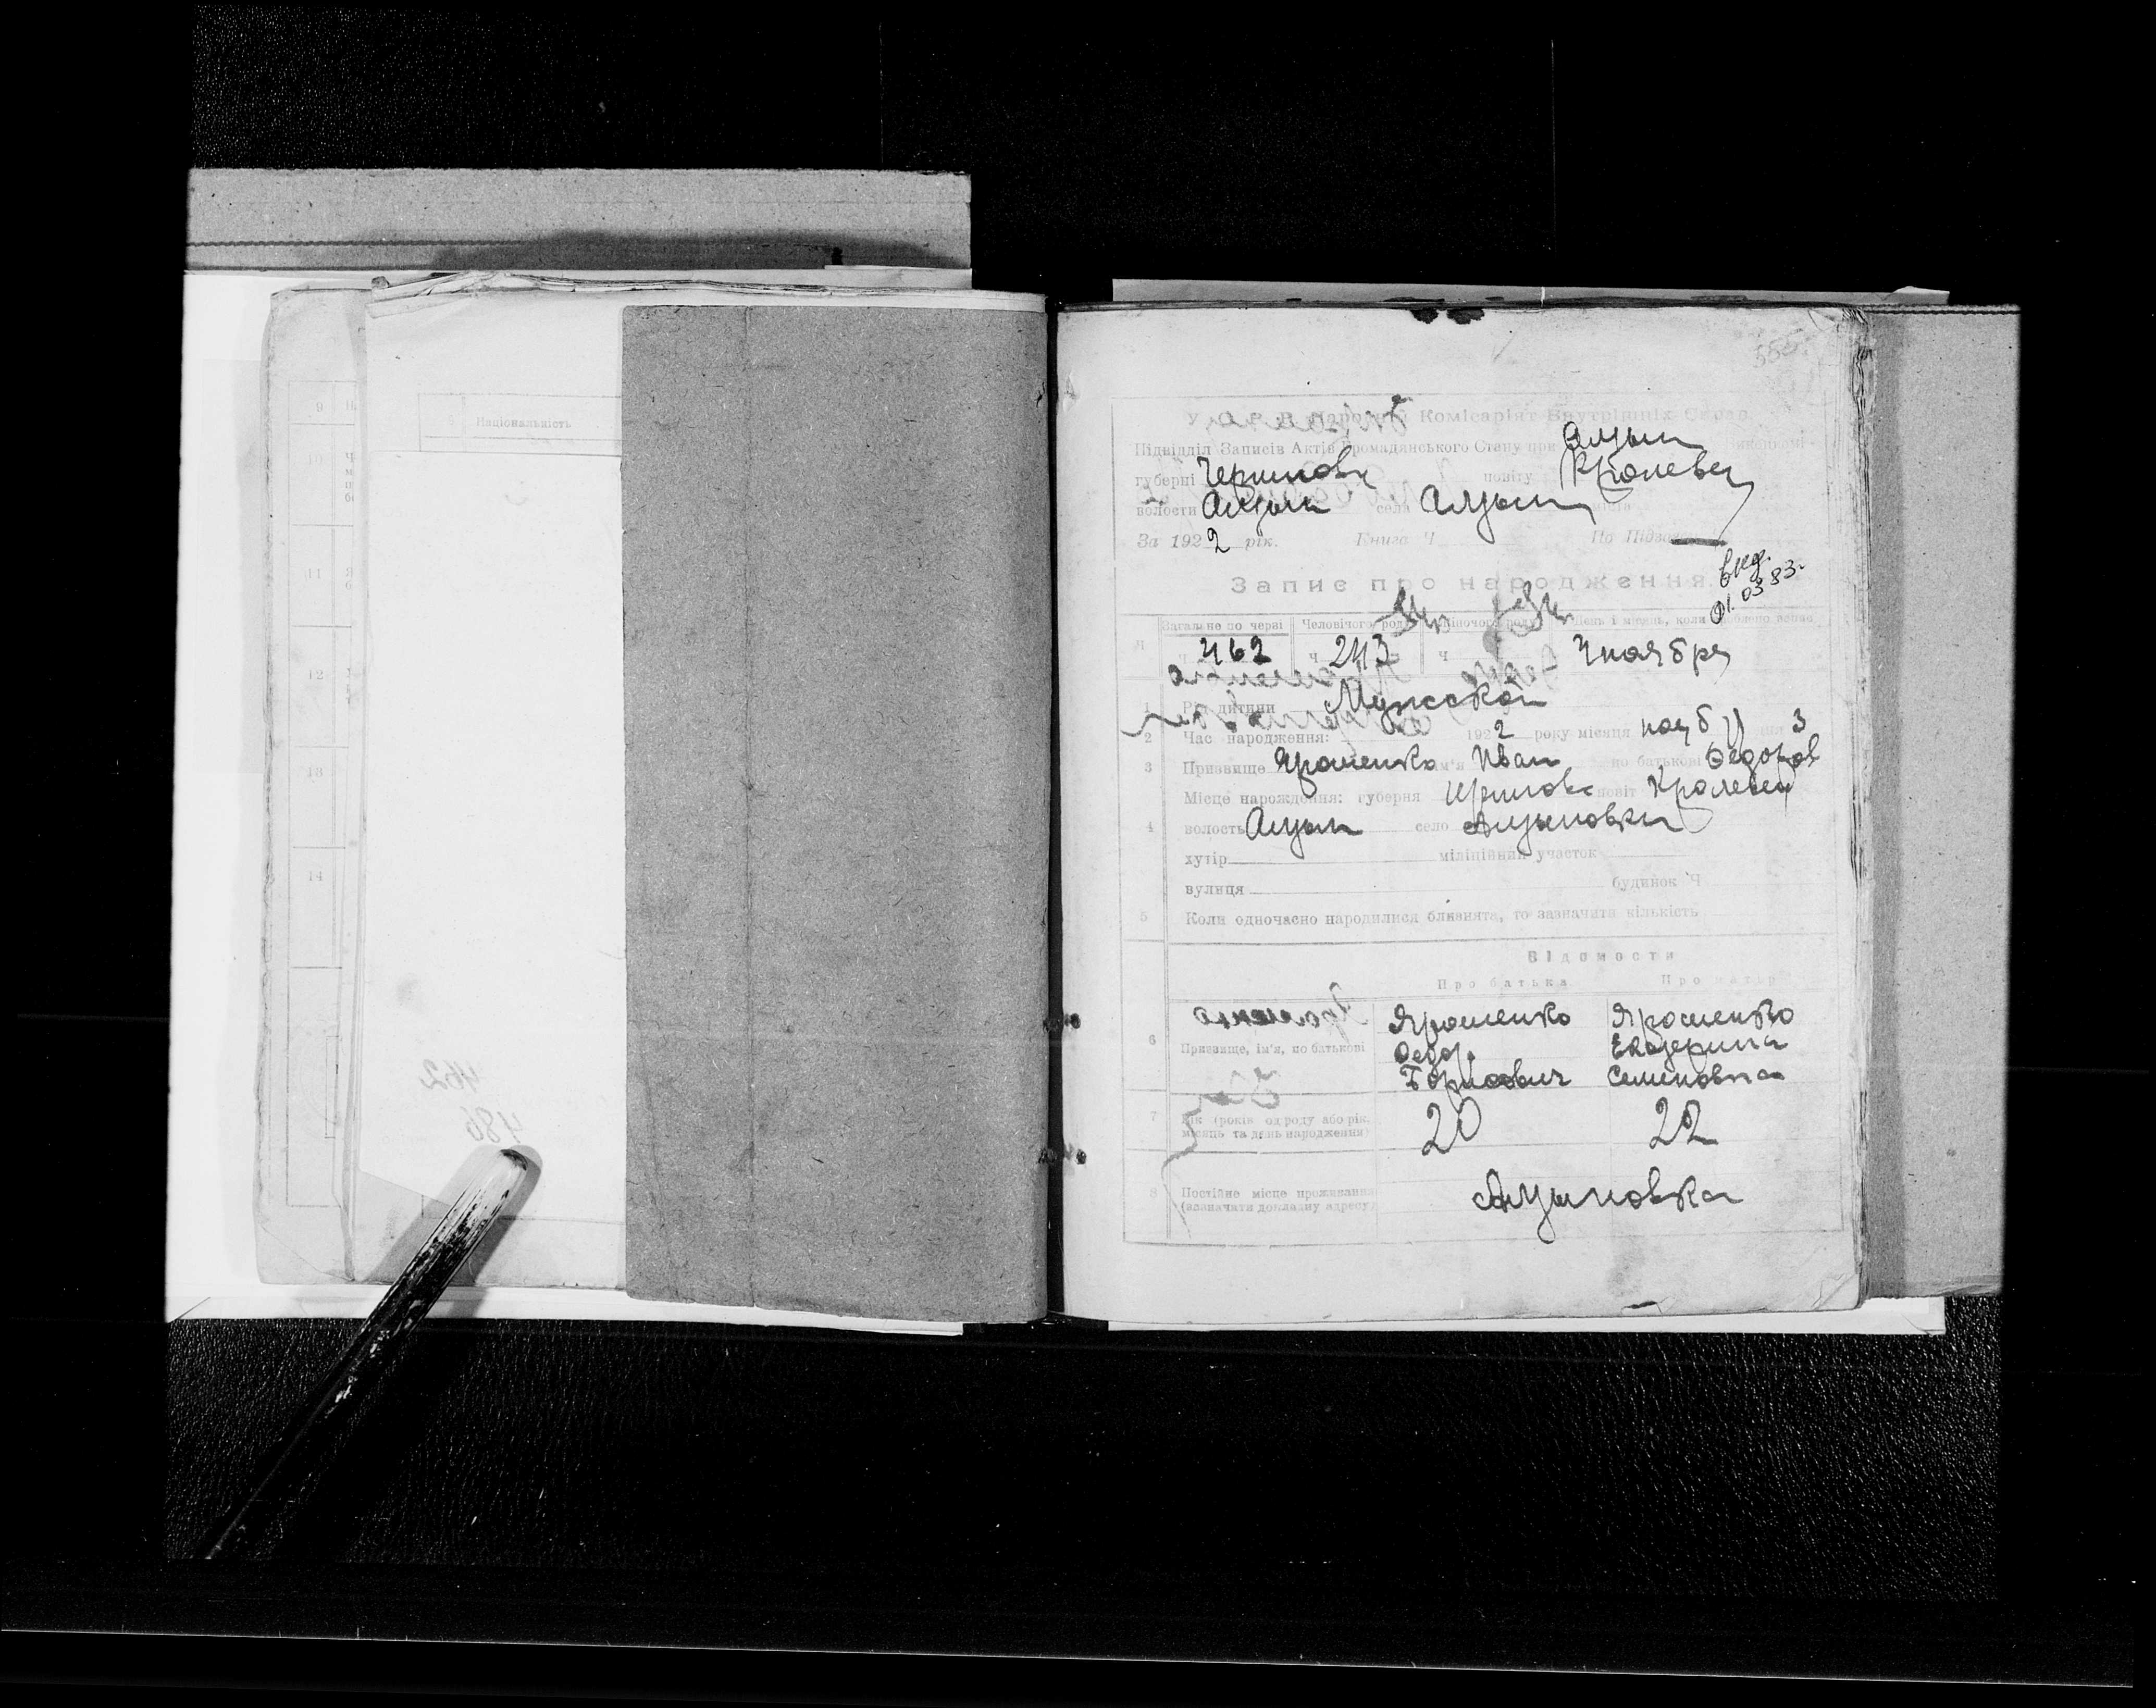 9
10
11
12
13
14
5 Національність
462
486
555
У.С.Р.Р. Народній Комісаріят Внутрішніх Справ
Підвідділ Записів Актів Громадянського Стану при Алтын
губерні Чернигов повіту Кролевец
волости Алтын села Алтын міста
За 1922 рік. Книга Ч По Підвід
вкд.
01.03 83.
Запис про народження
Ч Загальне по черзі Человічого роду Жіночого роду День і місяць, коли зроблено запис
ч 462 ч 243 ч 4 ноября
1 Рід дитини Мужской
2 Час народження: 1922 року місяця ноября дня 3
3 Призвище Ярошенко ім'я Иван по батькові Федоров
Місце народження: губерня Чернигов повіт Кролевец
4 волость Алтын село Алтыновка
хутір міліційний участок
вулиця будинок Ч
5 Коли одночасно народилися близнята, то зазначити кількість
Відомости
Про батька Про матір
Ярошенко Ярошенко
6 Призвище, ім'я, по батькові Федор Екатерина
Борисович Семеновна
7 Вік (років од роду або рік, 20 22
місяць та день народження)
8 Постійне місце проживання Алтыновка
(зазначати докладну адресу)